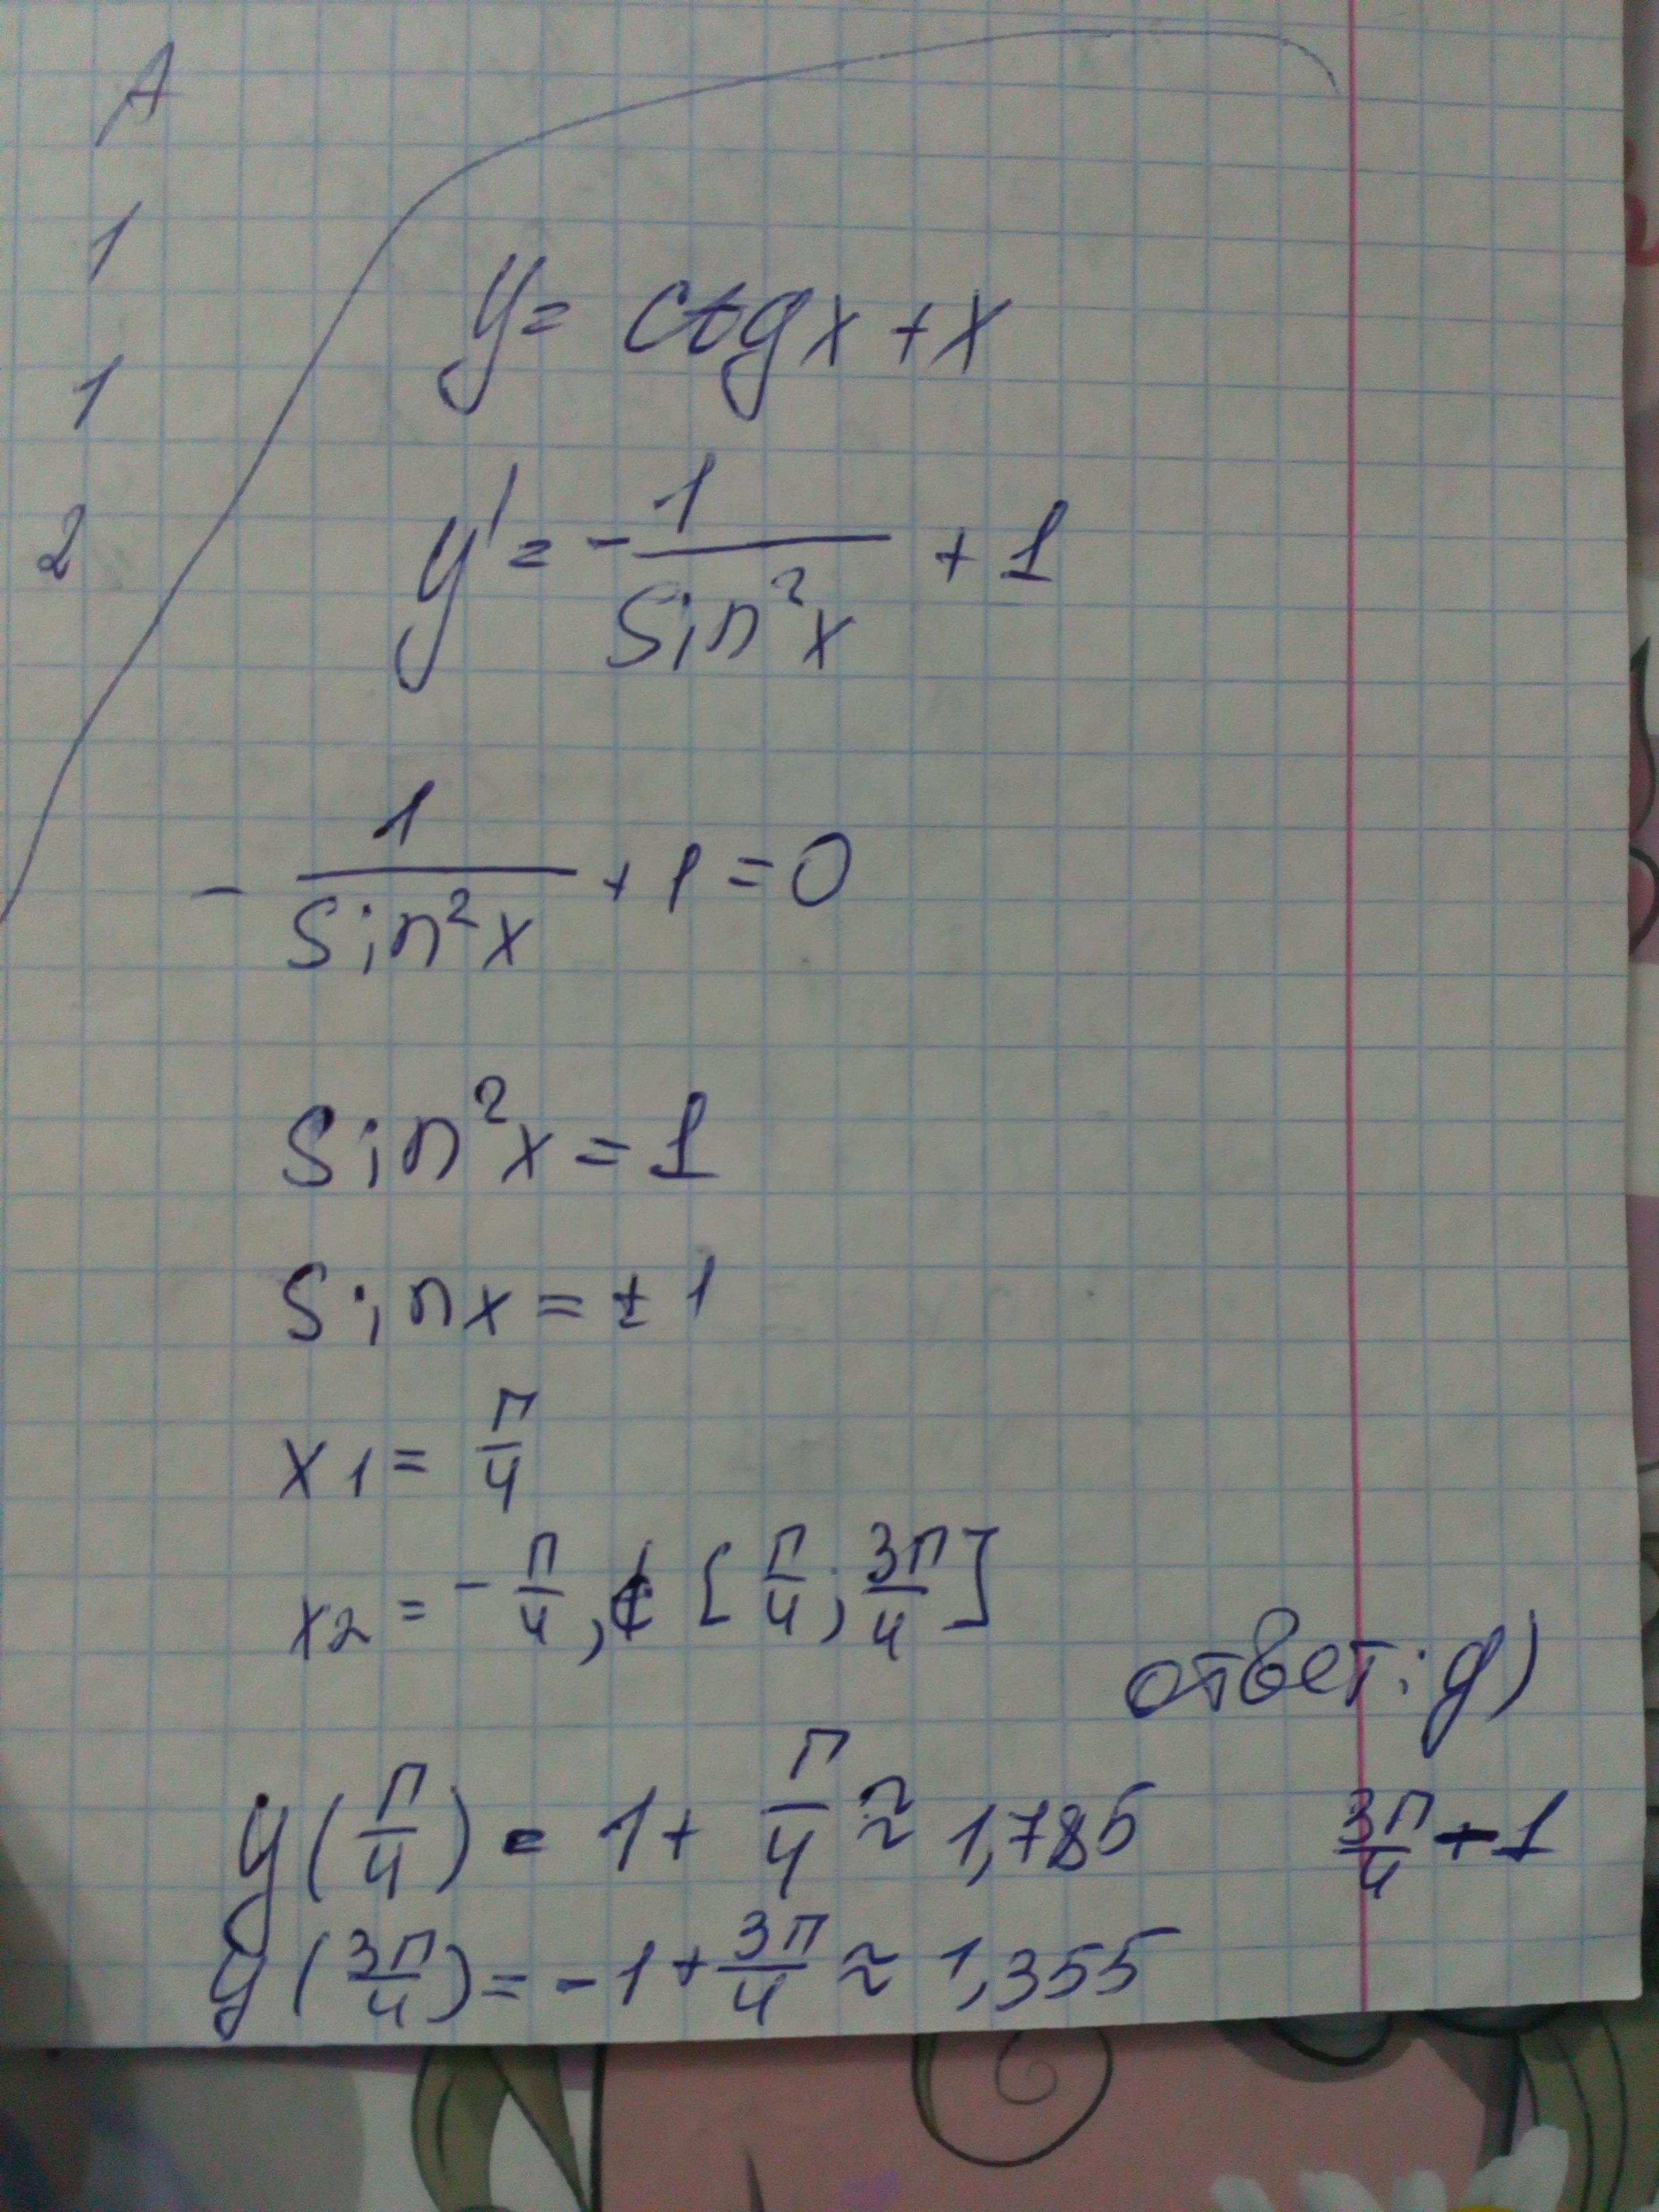 A
1
1
2
y = ctgx + x
y' = - 1/sin²x + 1
- 1/sin²x + 1 = 0
sin²x = 1
sinx = ± 1
x1 = π/4
x2 = - π/4, ∉ [π/4; 3π/4]
ответ: д)
y(π/4) = 1 + π/4 ≈ 1,785
3π/4 + 1
y(3π/4) = -1 + 3π/4 ≈ 1,355